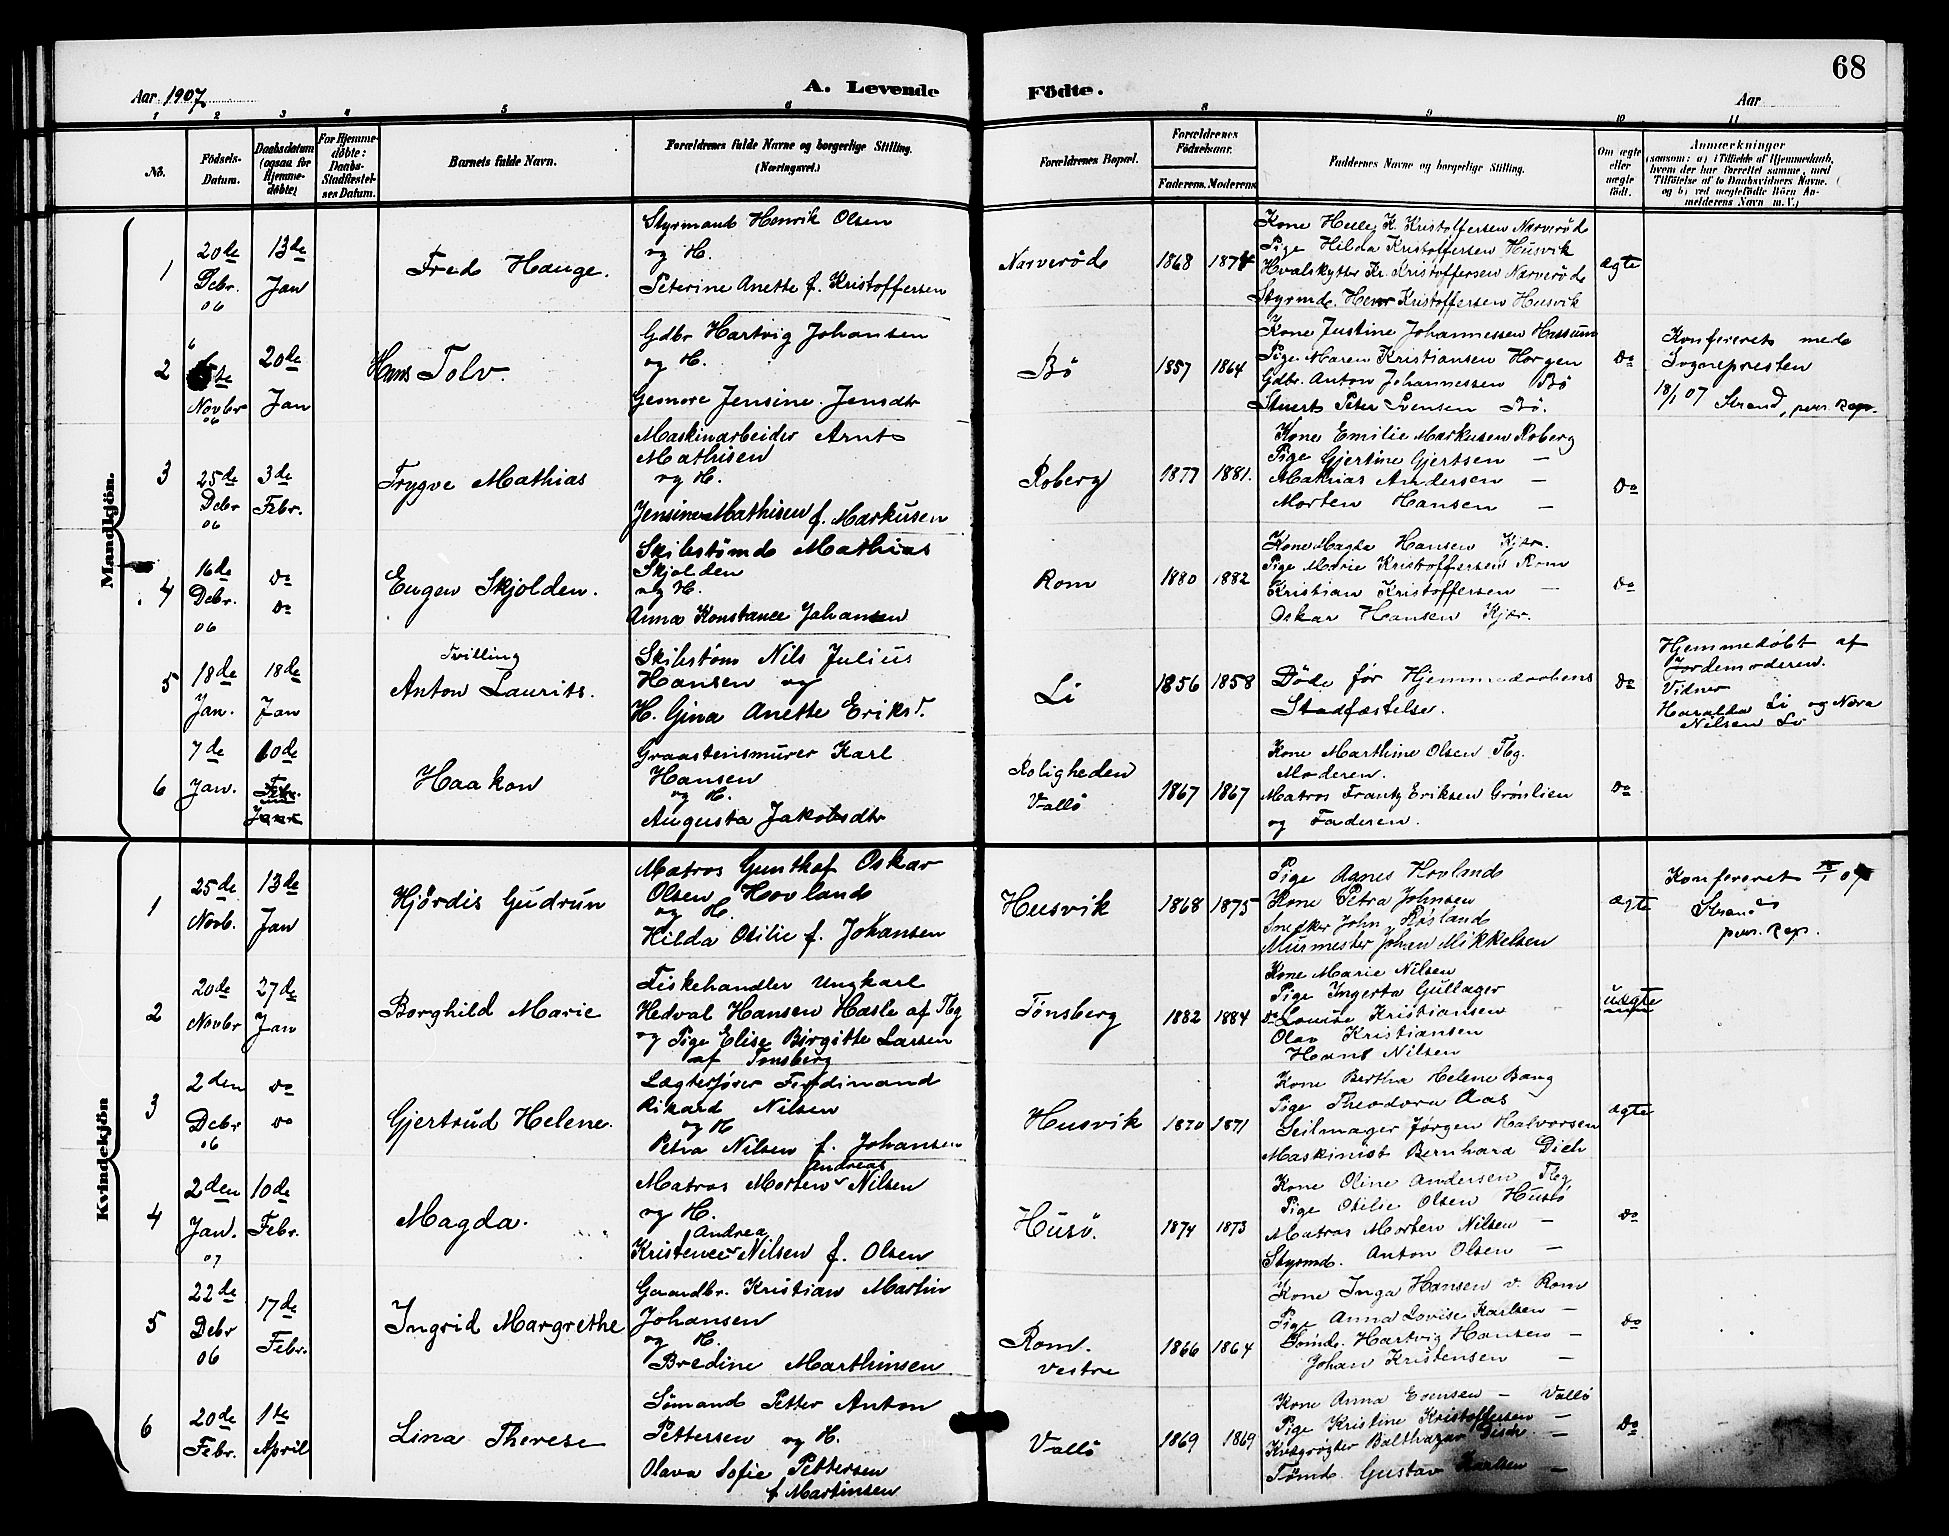 68
Aar 1907
A. Levende Födte.
Aar
1 2 3 4 5 6 8 9 10 11
No. Födsels-Datum. Daabsdatum (ogsaa for Hjemmedöbte) For Hjemmedöbte: Daabs-Stadfæstelses Datum. Barnets fulde Navn. Forældrenes fulde Navne og borgerlige Stilling. (Næringsvei.) Forældrenes Bopæl. Forældrenes Födselsaar. Faderens. Moderens Faddernes Navne og borgerlige Stilling. Om ægte eller uægte födt. Anmærkninger (saasom: a) i Tilfælde af Hjemmedaab, hvem der har forrettet samme, med Tilföielse af to Daabsvidners Navne. og b) ved uægtefödte Börn Anmelderens Navn m. V.)
Mandkjön.
1
20de Debr. 06
13de Jan
Fred Hauge.
Styrmand Henrik Olsen
og H.
Peterine Anette f. Kristoffersen
Narveröd
1868 1874
Kone K. Kristoffersen Narveröd
Pige Hilda Kristoffersen Husvik
Hvalskytter Kr. Kristoffersen Narveröd
Styrmd. Henr Kristoffersen Husvik
ægte
2
6te Novbr 06
20de Jan
Hans Tolv.
Gdbr Hartvig Johansen
og H.
Jensine Jensdtr
Bö
1857 1864
Kone Justine Johannessen
Pige Maren Kristiansen Horgen
Gdbr. Anton Johannessen Bö
Stuert Peter Svensen Bö.
do
Konfereret med
Sognepresten
18/1 07 Strand, pers. Kap.
3
25de Debr 06
3de Febr.
Trygve Mathias
Maskinarbeider Arnt
Mathisen
og H.
Jensine Mathisen f. Markusen
Roberg
1877 1881.
Kone Emilie Markusen Roberg
Pige Gjertine Gjertsen —
Mathias Andersen —
Morten Hansen —
do
4
16de Debr. 06
do do
Eugen Skjolden.
Skibstømd Mathias
Skjolden
og H.
Anna Konstance Johansen
Rom
1880 1882
Kone Magda Hansen Kjær.
Pige Marie Kristoffersen Rom
Kristian Kristoffersen —
Oskar Hansen Kjær.
do
5
18de Jan.
18de Jan
Tvilling
Anton Laurits.
Skibstøm Nils Julius
Hansen og
H. Gina Anette Eriksd.
Li
1856 1858
Döde før Hjemmedaabens
Stadfæstelse.
do
Hjemmedøbt af
Jordemoderen.
Vidner
Haralda Li og Nora
Nilsen Li
6
7de Jan.
10de Febr.
Haakon
Graastensmurer Karl
Hansen
og H.
Augusta Jakobsdtr
Roligheden
Vallö
1867 1867
Kone Marthine Olsen Tbg.
Moderen.
Matros Frantz Eriksen Grönlien
og Faderen.
do
Kvindekjön
1
25de Novb.
13de Jan
Hjördis Gudrun
Matros Gunthof Oskar
Olsen Hovland
og H.
Hilda Otilie f. Johansen
Husvik
1868 1875
Pige Agnes Hovland
Kone Petra Johnsen
Snedker John Røsland
Murmester Johan Mikkelsen
ægte
Konfereret 07
Strand
pers. Kap.
2
20de Novbr
27de Jan
Borghild Marie
Fiskehandler Ungkarl
Hedval Hansen Hasle af Tbg
og Pige Elise Birgitte Larsen
af Tønsberg
Tönsberg
1882 1884
Kone Marie Nilsen
Pige Ingerta Gullager
do Louise Kristiansen
Olav Kristiansen
Hans Nilsen
uægte
3
2den Debr 06
do do
Gjertrud Helene.
Lægterfører Ferdinand
Rikard Nilsen
og H
Petra Nilsen f. Johansen
Husvik
1870 1871
Kone Bertha Helene Bang
Pige Theodora Aas
Seilmager Jørgen Halvorsen
Maskinist Bernhard Dich
ægte
4
2den Jan. 07
10de Febr.
Magda.
Andreas
Matros Morten Nilsen
og H.
Andrea
Kristence Nilsen f. Olsen
Husö.
1874 1873
Kone Oline Andersen Tbg
Pige Otilie Olsen Husö
Matros Morten Nilsen —
Styrmd. Anton Olsen —
do
5
22de Debr 06
17de Febr.
Ingrid Margrethe
Gaardbr. Kristian Martin
Johansen
og H.
Bredine Marthinsen
Rom.
Vestre
1866 1864
Kone Inga Hansen v. Rom
Pige Anna Lovise Karlsen —
Tømd. Hartvig Hansen —
Johan Kristensen —
do
6
20de Febr.
1te April
Lina Therese
Sömand Petter Anton
Pettersen og H.
Olava Sofie Pettersen
f Martinsen
Vallö
1869 1869
Kone Anna Evensen — Vallö
Pige Kristine Kristoffersen —
Balthazar Disch —
Tømd. Gustav Karlsen —
do